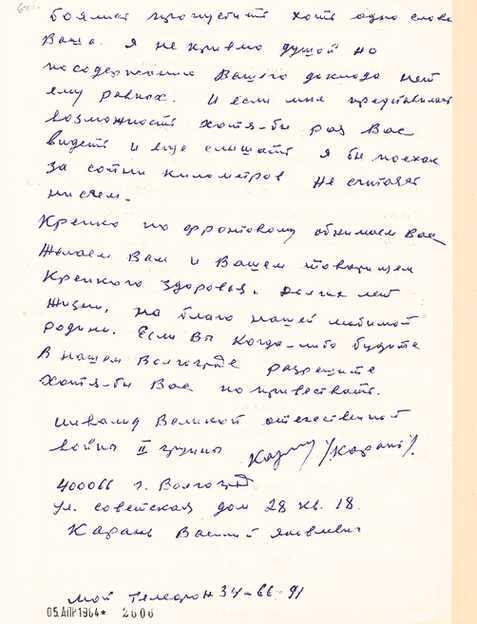 боялись пропустить хоть одно слово
Ваше. я не кривлю душой но
по содержанию Вашего доклада нет
ему равных. И если мне представилась
возможность хотя-бы раз Вас
видеть и еще слышать я бы поехал
за сотни километров не считаясь
ни с чем.
Крепко по фронтовому обнимаем Вас
Желаем Вам и Вашем товарищем
крепкого здоровья. долгих лет
жизни, на благо нашей любимой
родины. Если Вы когда-либо будите
в нашем Волгограде разрешите
хотя-бы Вас поприветствать.
инвалид Великой отечественной
войны II группы /Карань/.
400066 г. Волгоград
ул. советская дом 28 кв. 18.
Карань Василий Яковлевич
мой телефон 34-66-91
05.АПР.1984* 2606